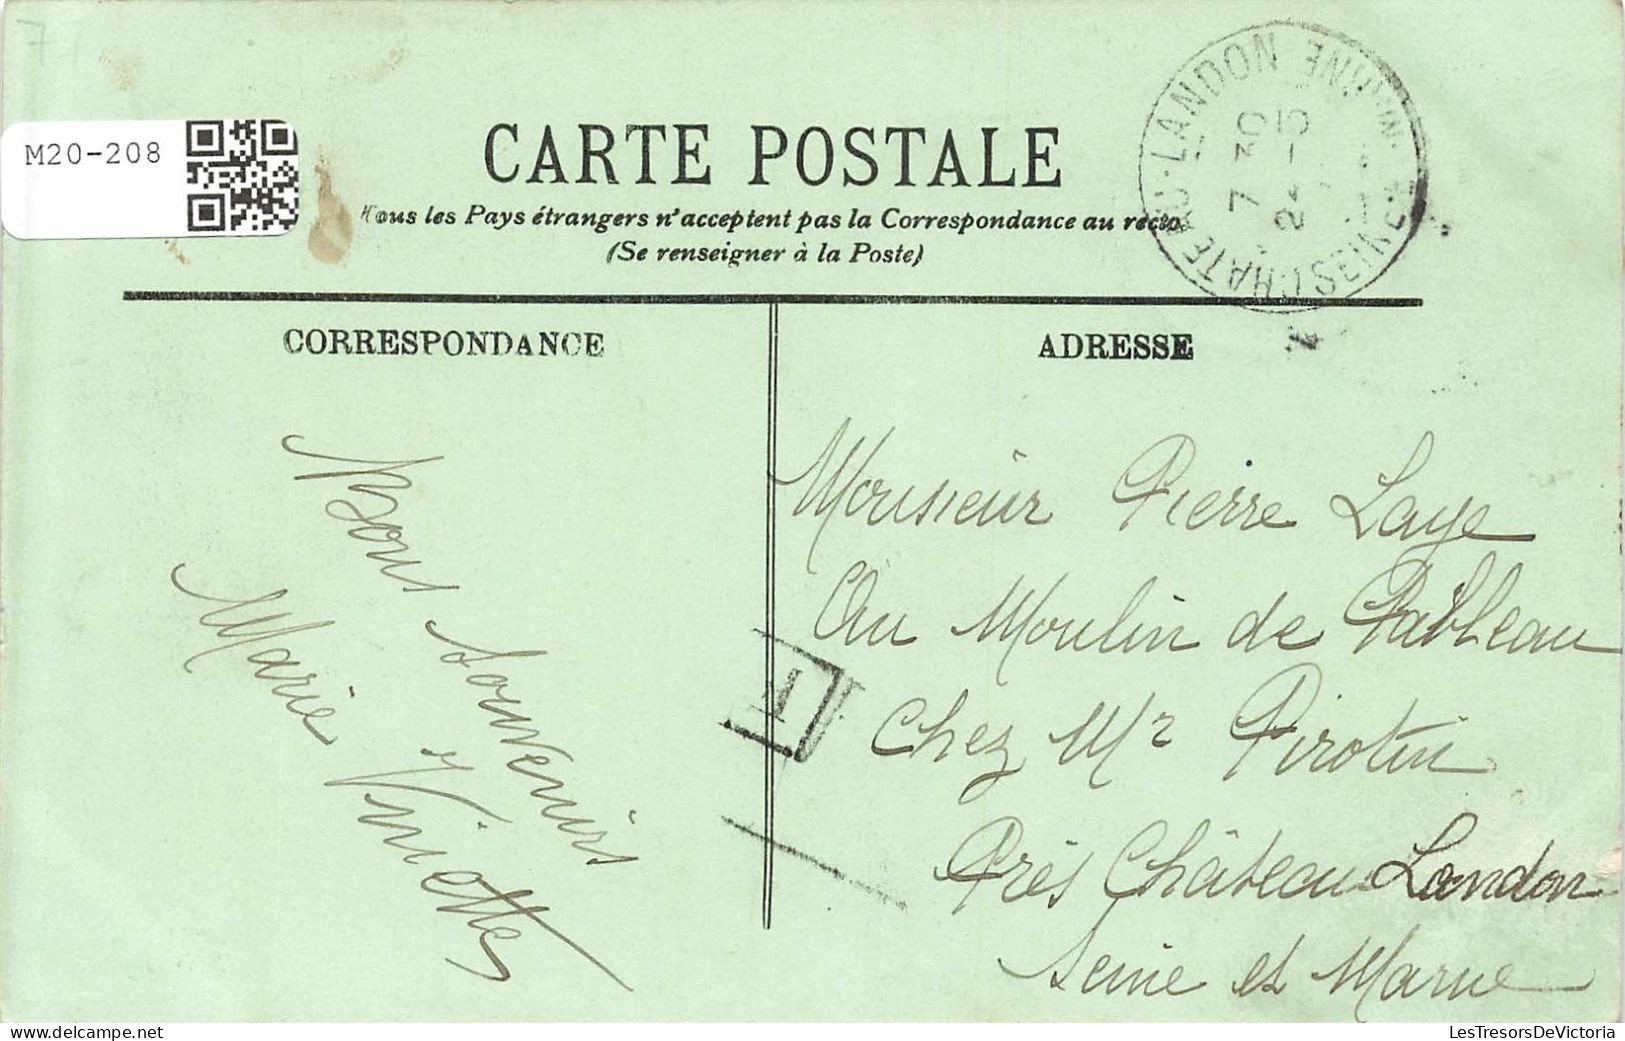 M20-208
CARTE POSTALE
Tous les Pays étrangers n'acceptent pas la Correspondance au recto
(Se renseigner à la Poste)
CHATEAU-LANDON
SEINE
7 30
CORRESPONDANCE
Bons Souvenirs
Marie Viniotte
ADRESSE
Monsieur Pierre Laye
Au Moulin de
Chez Mr Pirotin
Près Château Landon
Seine et Marne
T
LesTresorsDeVictoria